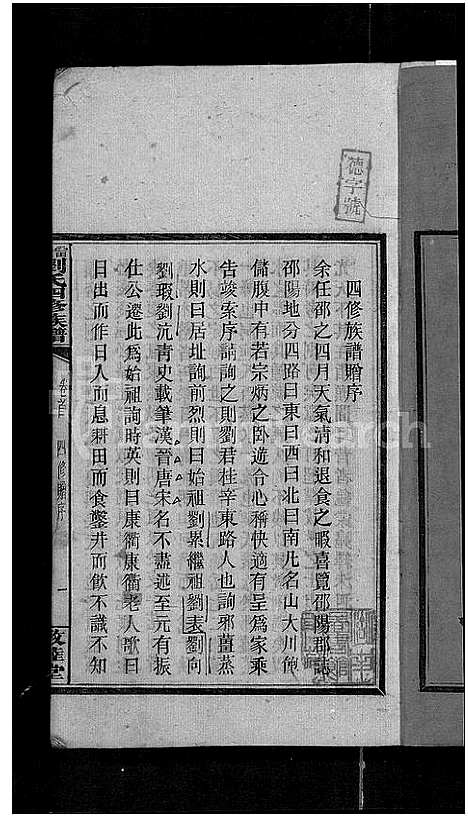 德字號
四修族譜贈序
余任邵之四月天氣清和退食之暇喜覽邵陽郡誌
邵陽地分四路曰東曰西曰北曰南凡名山大川飽
儲腹中有若宗炳之臥遊令心稱快適有呈為家乘
告竣索序請詢之則劉君桂辛東路人也詢邪薑蒸
水則曰居址詢前烈則曰始祖劉累繼祖劉表劉向
劉瑕劉沆青史載筆漢晉唐宋名不盡述至元有振
仕公遷此為始祖詢時英則曰康衢康衢老人歌曰
日出而作日入而息耕田而食鑿井而飲不識不知
劉氏四修族譜
卷首 四修贈序 一
敦睦堂